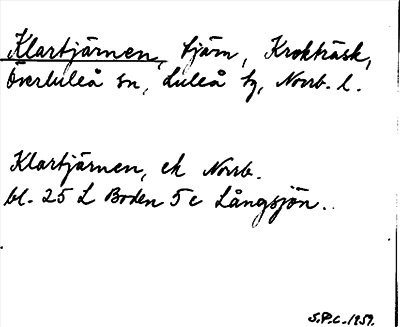 Klartjärnen, tjärn, Krokträsk,
Överluleå sn, Luleå tg, Norrb. l.
Klartjärnen, ek Norrb.
bl. 25 L Boden 5 c Långsjön.
S.P.C. 1959.